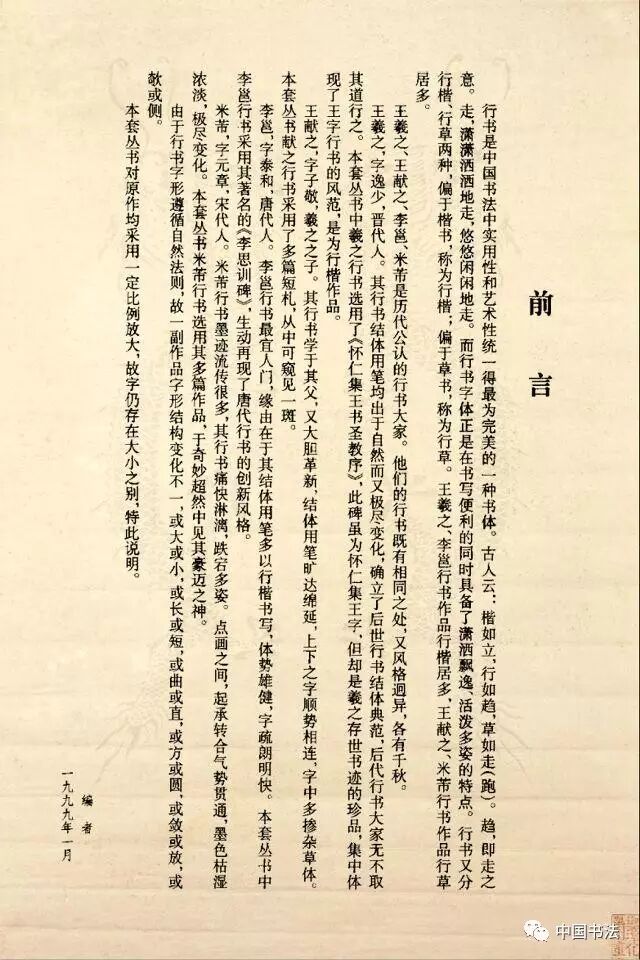 前言
行书是中国书法中实用性和艺术性统一得最为完美的一种书体。古人云：楷如立，行如趋，草如走（跑）。趋，即走之
意。走，潇潇洒洒地走，悠悠闲闲地走。而行书字体正是在书写便利的同时具备了潇洒飘逸、活泼多姿的特点。行书又分
行楷、行草两种，偏于楷书，称为行楷；偏于草书，称为行草。王羲之、李邕行书作品行楷居多，王献之、米芾行书作品行草
居多。
王羲之、王献之、李邕、米芾是历代公认的行书大家。他们的行书既有相同之处，又风格迥异，各有千秋。
王羲之，字逸少，晋代人。其行书结体用笔均出于自然而又极尽变化，确立了后世行书结体典范，后代行书大家无不取
其道行之。本套丛书中羲之行书选用了《怀仁集王书圣教序》，此碑虽为怀仁集王字，但却是羲之存世书迹的珍品，集中体
现了王字行书的风范，是为行楷作品。
王献之，字子敬，羲之之子。其行书学于其父，又大胆革新，结体用笔旷达绵延，上下之字顺势相连，字中多掺杂草体。
本套丛书献之行书采用了多篇短札，从中可窥见一斑。
李邕，字泰和，唐代人。李邕行书最宜入门，缘由在于其结体用笔多以行楷书写，体势雄健，字疏朗明快。本套丛书中
李邕行书采用其著名的《李思训碑》，生动再现了唐代行书的创新风格。
米芾，字元章，宋代人。米芾行书墨迹流传很多，其行书痛快淋漓，跌宕多姿。点画之间，起承转合气势贯通，墨色枯湿
浓淡，极尽变化。本套丛书米芾行书选用其多篇作品，于奇妙超然中见其豪迈之神。
由于行书字形遵循自然法则，故一副作品字形结构变化不一，或大或小，或长或短，或曲或直，或方或圆，或敛或放，或
欹或侧。
本套丛书对原作均采用一定比例放大，故字仍存在大小之别，特此说明。
编者
一九九九年一月
中国书法